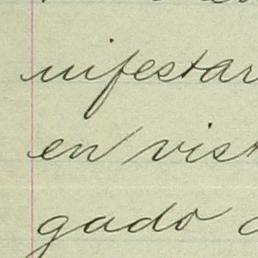 nifestar
en vist
gado